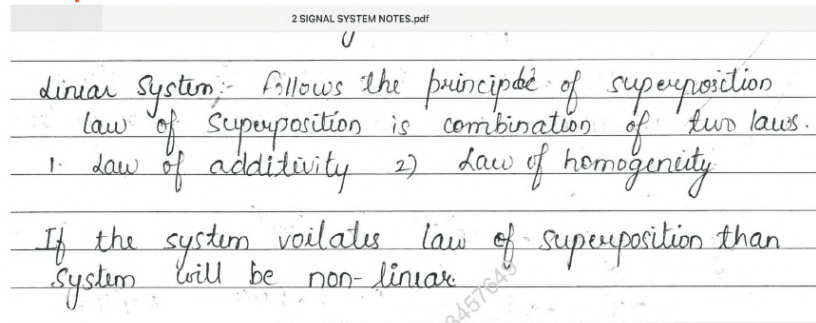 2 SIGNAL SYSTEM NOTES.pdf
Linear System:- follows the principle of superposition
law of Superposition is combination of two laws.
1. Law of additivity 2) Law of homogeneity
If the system voilates law of superposition than
System will be non-linear
3457645